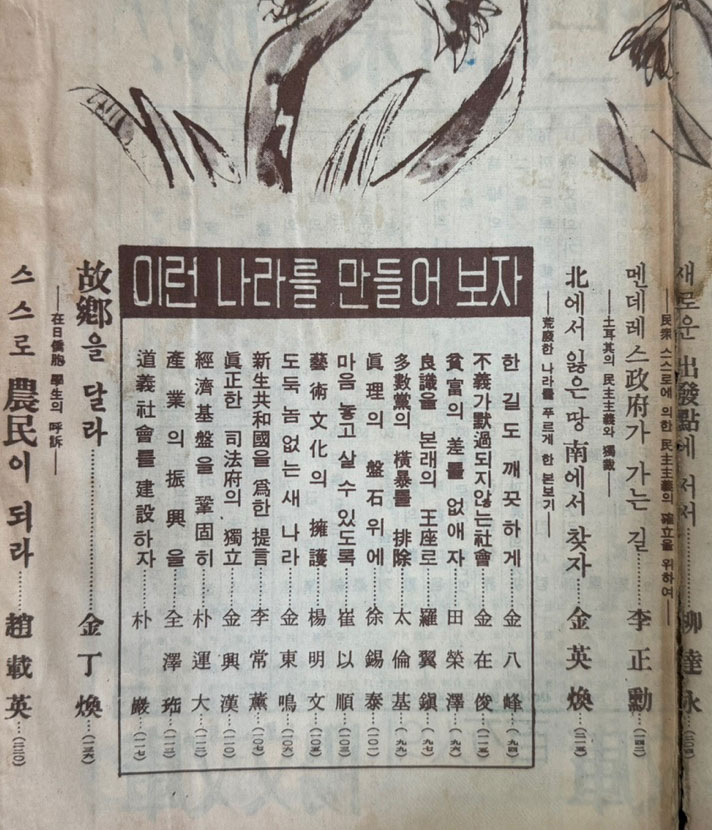 새로운 出發點에 서서……柳達永
―民衆 스스로에 의한 民主主義의 確立을 위하여―
멘데레스政府가 가는 길……李正勳
―土耳其의 民主主義와 獨裁―
北에서 잃은 땅 南에서 찾자……金英煥
―荒廢한 나라를 푸르게 한 본보기―
이런 나라를 만들어 보자
한 길도 깨끗하게 金八峰……(九四)
不義가 默過되지않는 社會 金在俊
貧富의 差를 없애자 田榮澤……(九六)
良識을 본래의 王座로 羅翼鎭……(九七)
多數黨의 橫暴를 排除 太倫基……(九九)
眞理의 盤石위에 徐錫泰……(一〇一)
마음 놓고 살 수 있도록 崔以順……(一〇三)
藝術文化의 擁護 楊明文……(一〇五)
도둑 놈 없는 새 나라 金東鳴……(一〇六)
新生共和國을 爲한 提言 李常薰……(一〇七)
眞正한 司法府의 獨立 金興漢……(一一〇)
經濟基盤을 鞏固히 朴運大
產業의 振興을 全澤珤
道義社會를 建設하자 朴巖……(一一七)
故鄕을 달라……金丁煥
―在日僑胞 學生의 呼訴―
스스로 農民이 되라……趙載英